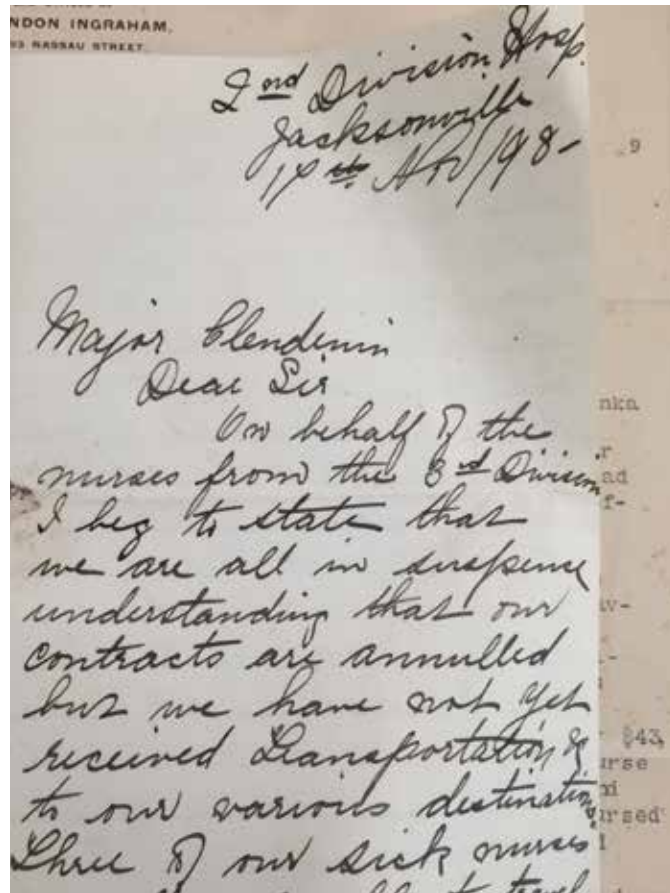 NDON INGRAHAM,
NASSAU STREET.
2nd Division Hosp.
Jacksonville
Nov/98-
Major Clendenin
Dear Sir
On behalf of the
nurses from the 3rd Division
I beg to state that
we are all in suspense
understanding that our
contracts are annulled
but we have not yet
received Transportation
to our various destinations
Three of our sick nurses
9
nka
r
ad
f-
av-
$43,
urse
ursed